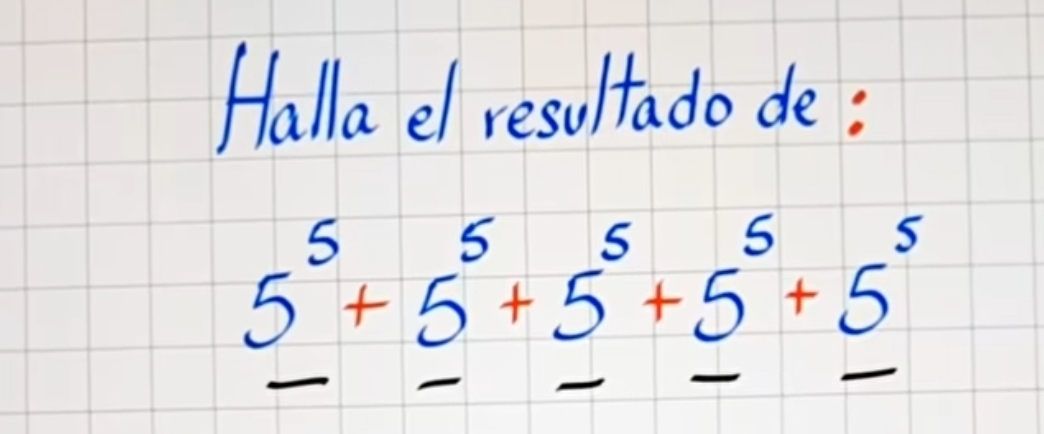 Halla el resultado de :
5⁵ + 5⁵ + 5⁵ + 5⁵ + 5⁵